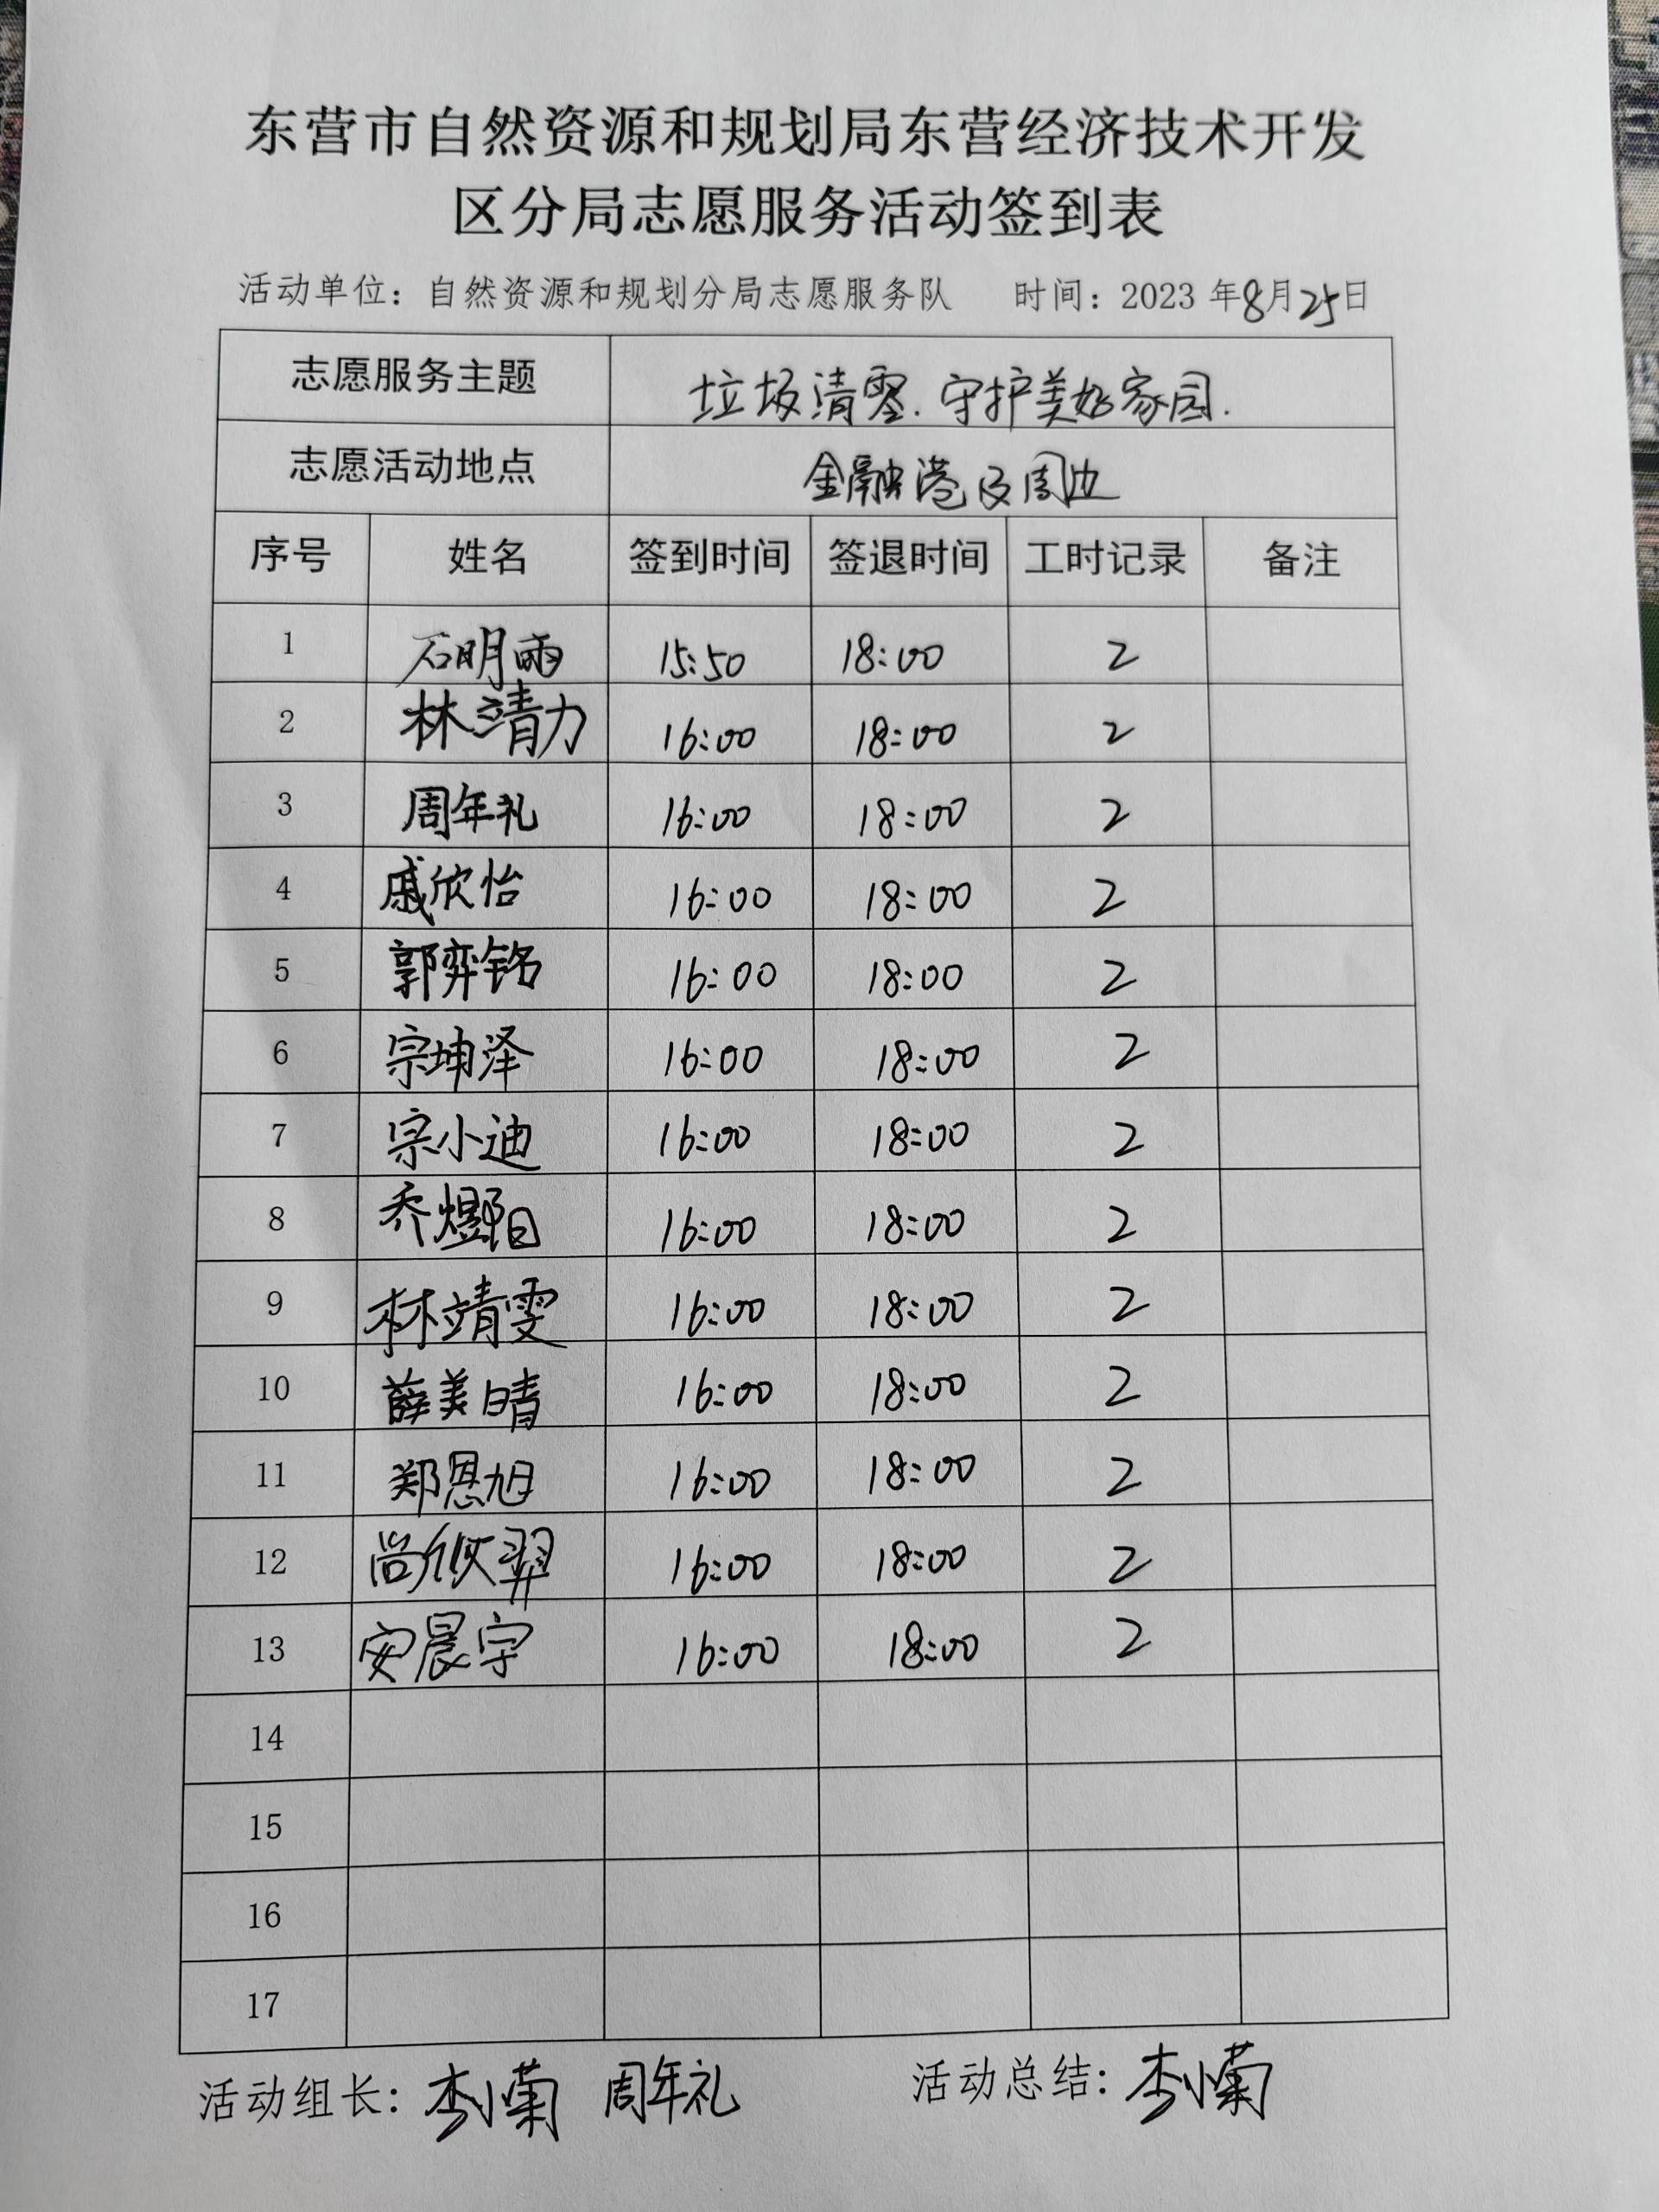 东营市自然资源和规划局东营经济技术开发
区分局志愿服务活动签到表
活动单位：自然资源和规划分局志愿服务队 时间：2023 年8月25日
志愿服务主题 垃圾清零.守护美好家园.
志愿活动地点 金融港及周边
序号 姓名 签到时间 签退时间 工时记录 备注
1 石明雨 15:50 18:00 2
2 林靖力 16:00 18:00 2
3 周年礼 16:00 18:00 2
4 戚欣怡 16:00 18:00 2
5 郭弈铭 16:00 18:00 2
6 宗坤泽 16:00 18:00 2
7 宗小迪 16:00 18:00 2
8 乔煜阳 16:00 18:00 2
9 林靖雯 16:00 18:00 2
10 薛美晴 16:00 18:00 2
11 郑恩旭 16:00 18:00 2
12 尚 16:00 18:00 2
13 安晨宇 16:00 18:00 2
14
15
16
17
活动组长：李小菊 周年礼 活动总结：李小菊